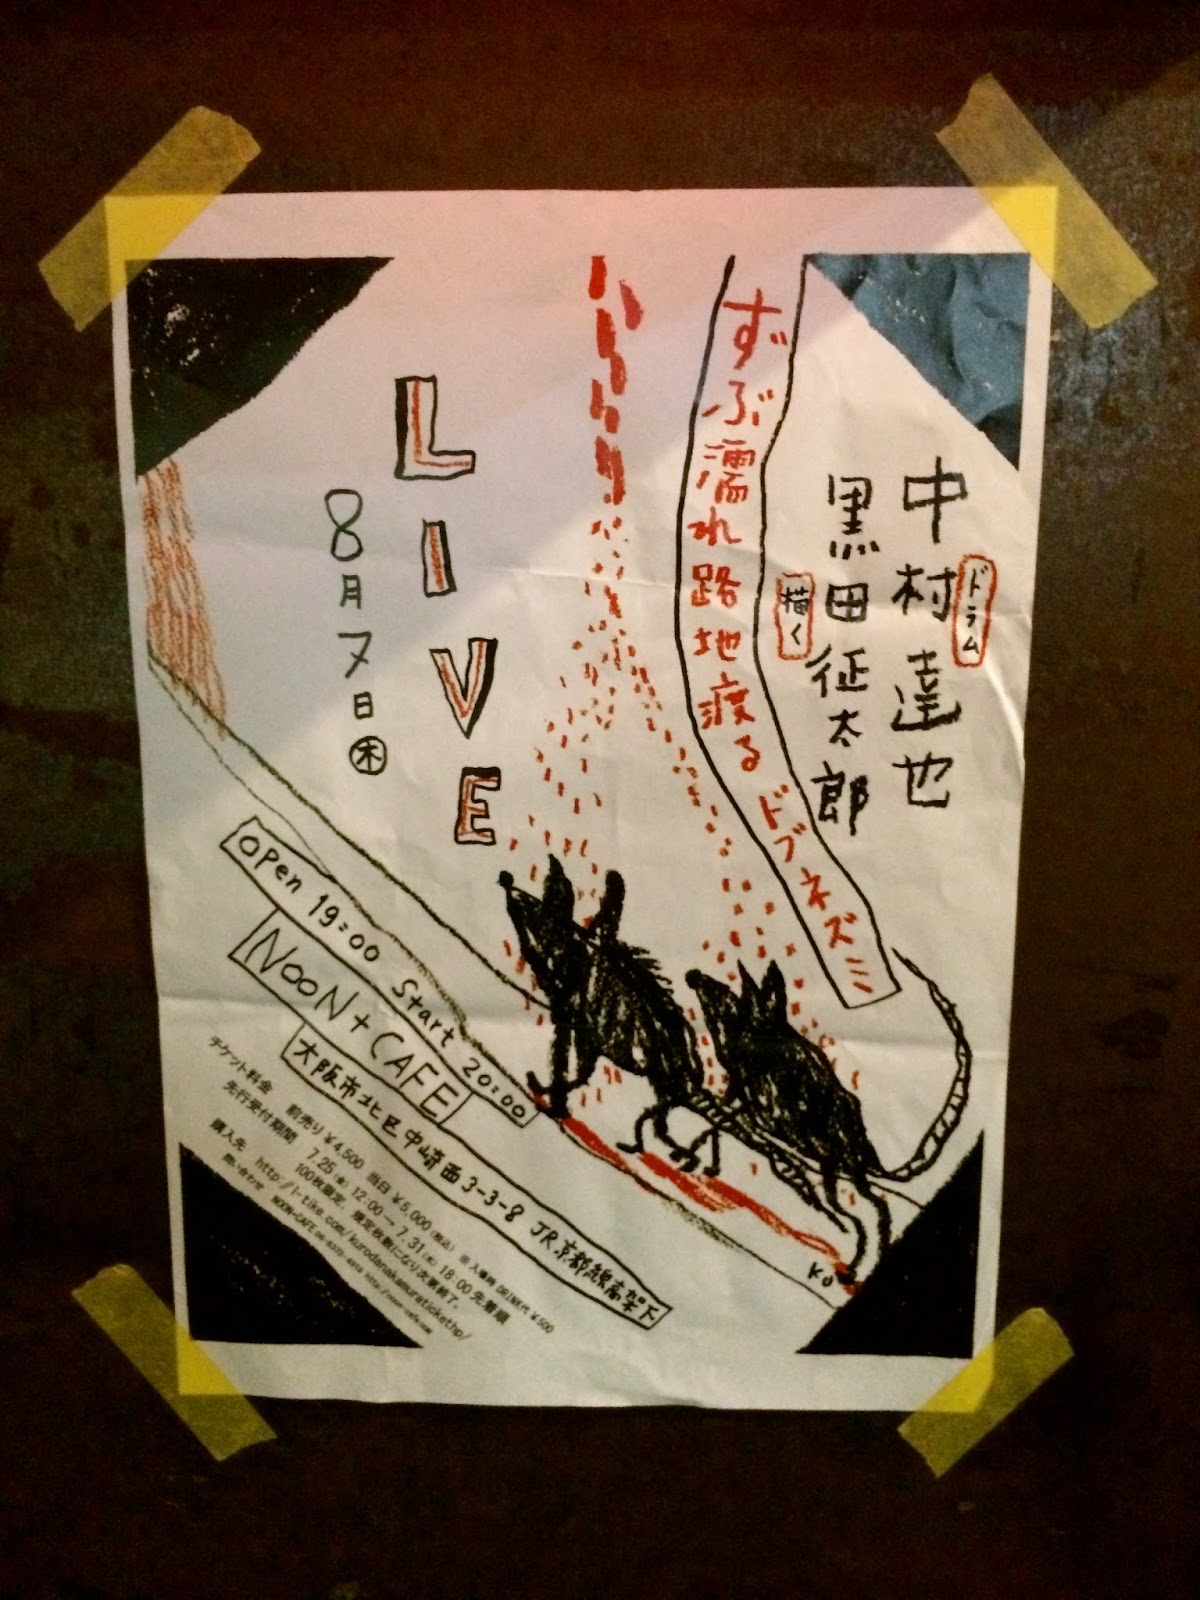 中村達也
ドラム
黒田征太郎
描く
ずぶ濡れ路地渡るドブネズミ
LIVE
8月7日㊍
OPen 19:00 Start 20:00
NooN+CAFE
大阪市北区中崎西3-3-8 JR京都線高架下
チケット料金 前売り¥4,500 当日¥5,000(税込) ※入場時 DRINK代¥500
先行受付期間 7.25(金) 12:00→7.31(木) 18:00 先着順
100枚限定、限定枚数になり次第終了。
購入先 http://l-tike.com/kurodanakamuratickethp/
問い合わせ NOON+CAFE
KU